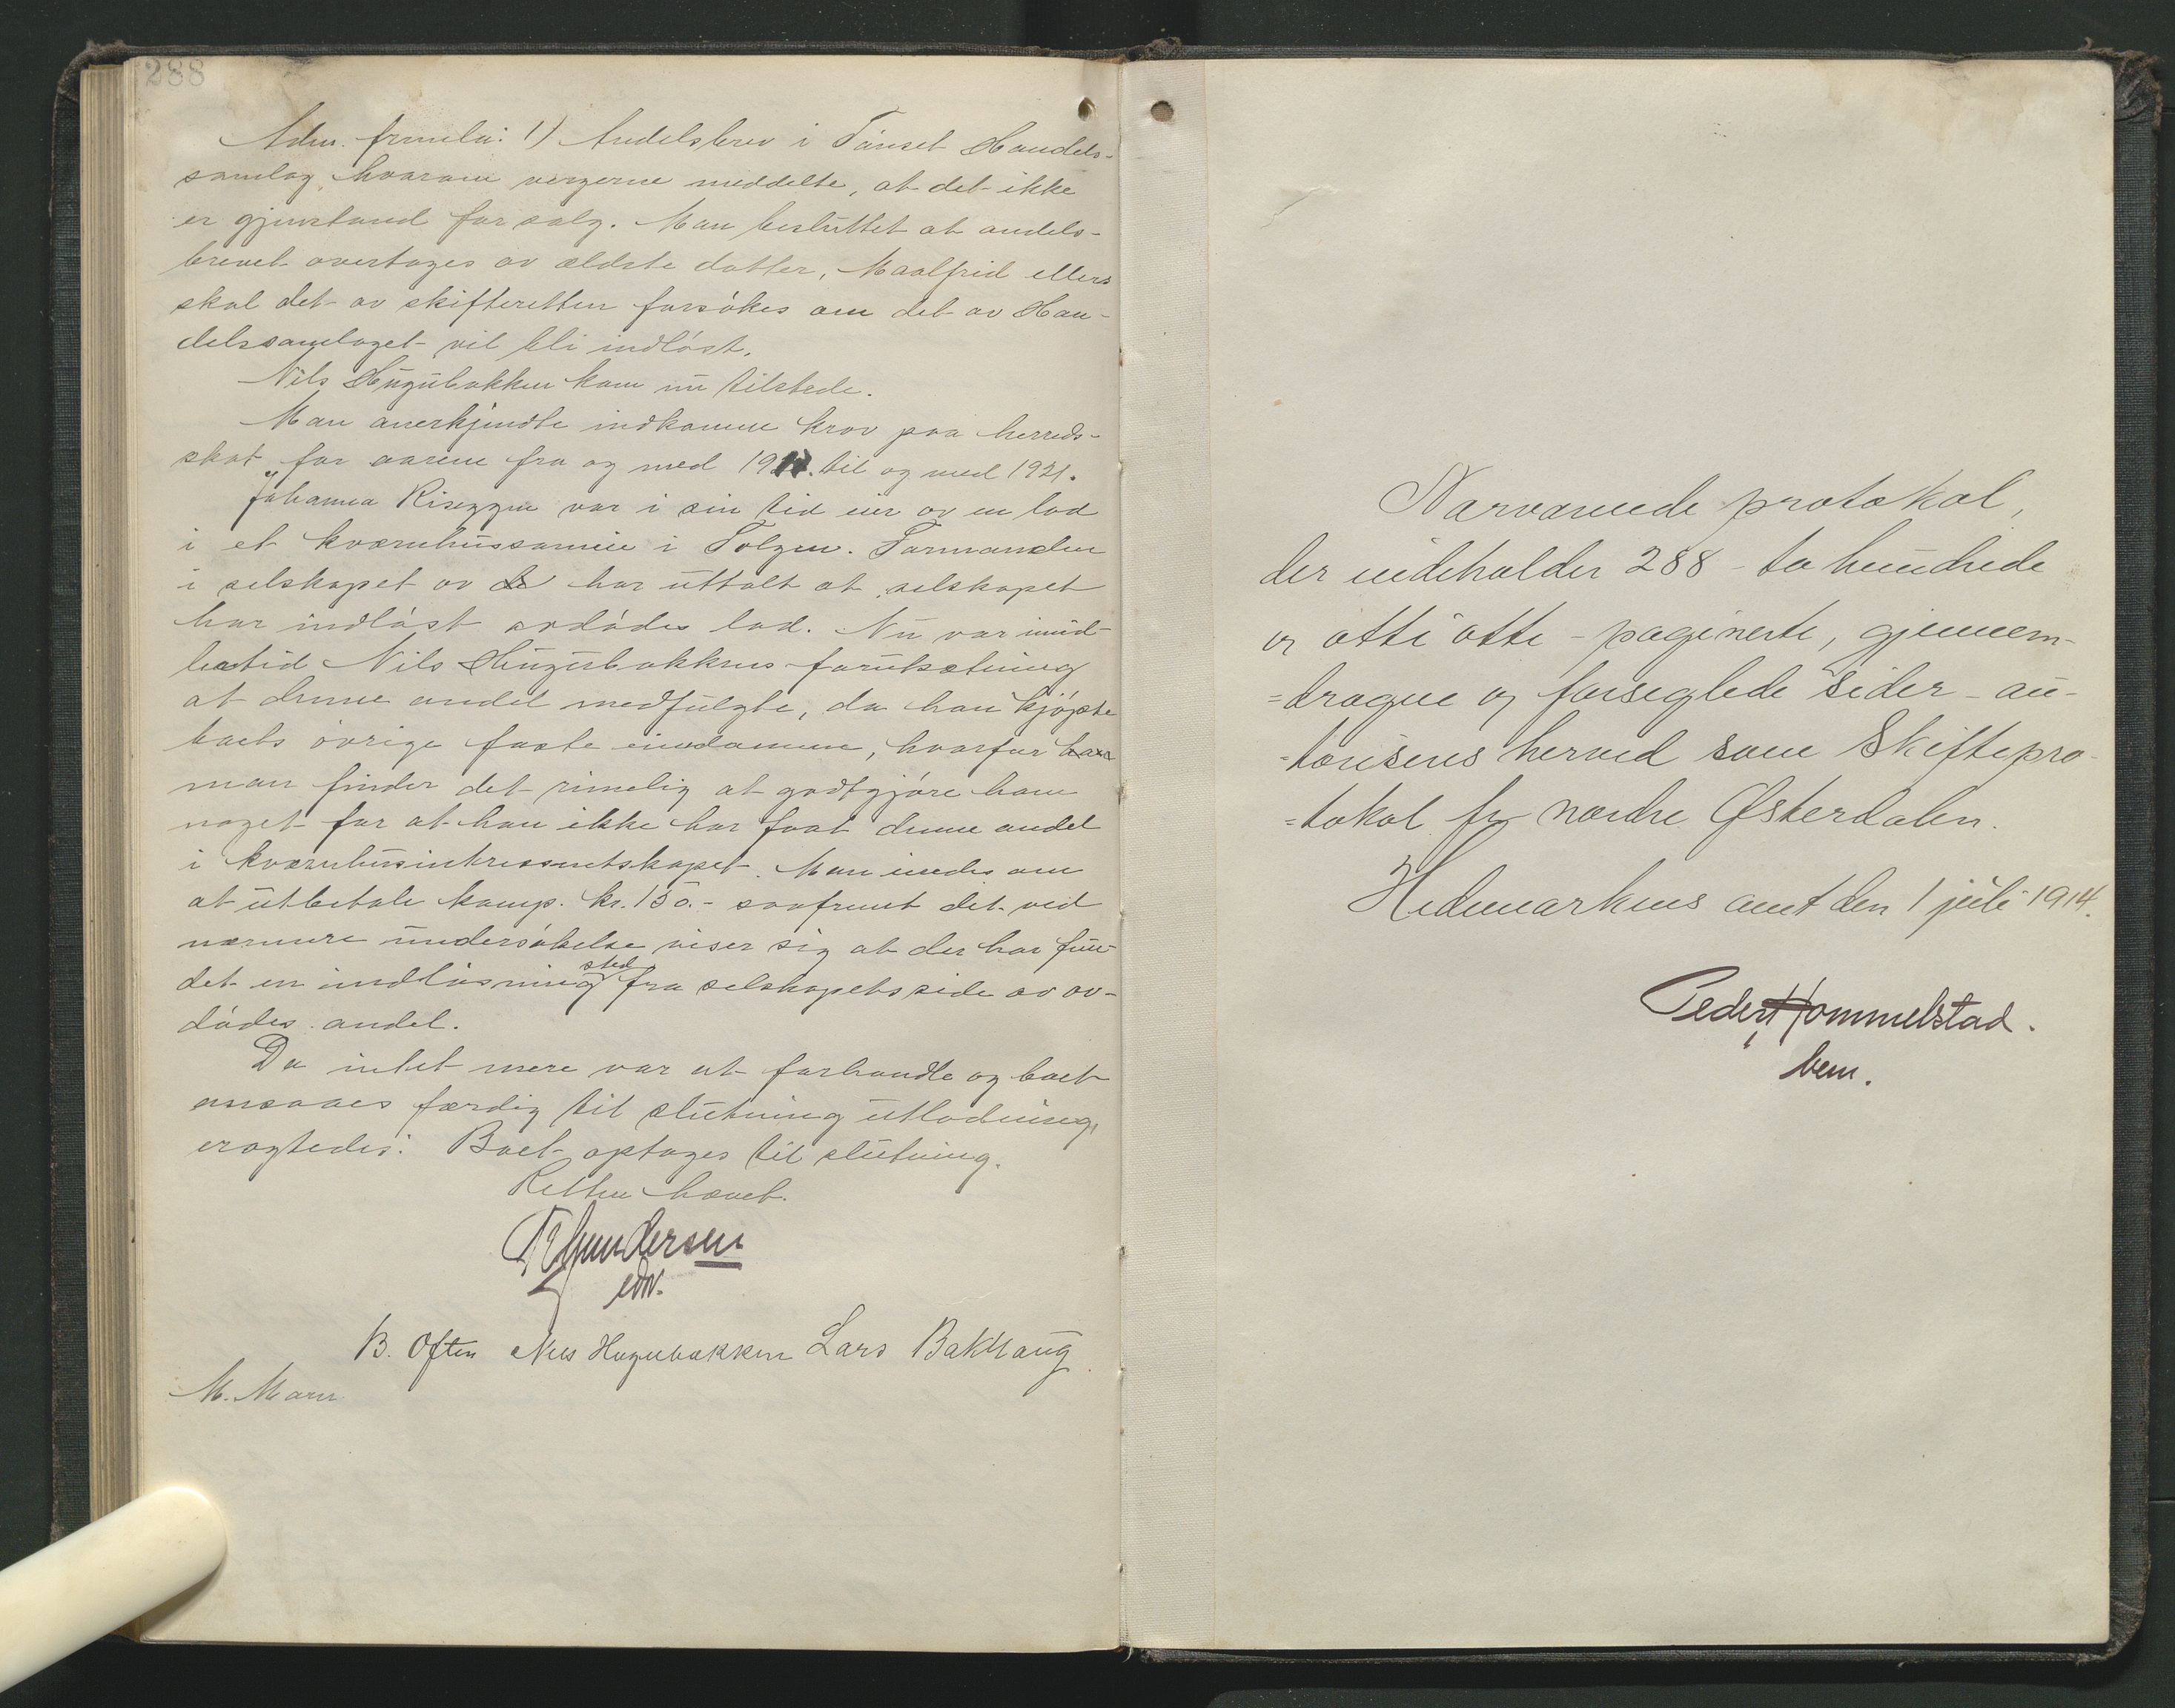 288
Adm. fremla: 1) Andelsbrev i Tønset Handels-
samlag, hvorom vergerne meddelte, at det ikke
er gjenstand for salg. Man besluttet at andels-
brevet overtages av ældste datter, Maalfrid ellers
skal det av skifteretten forsökes om det av Han-
delssamlaget vil bli indlöst.
Nils Hugubakken kom nu tilstede.
Man anerkjendte indkomne krav paa herreds-
skat for aarene fra og med 1917. til og med 1921.
Johanna Riseggen var i sin tid eier av en lod
i et kværnhussameie i Tolgen. Formanden
i selskapet av har uttalt at selskapet
har indlöst avdödes lod. Nu var imid-
lertid Nils Hugubakkens forutsætning
at denne andel medfulgte, da han kjöpte
boets övrige faste eiendomme, hvorfor
man finder det rimelig at godtgjöre ham
noget for at han ikke har faat denne andel
i kværnhusinteressentskapet. Man enedes om
at utbetale komp. kr. 150.- saafremt det ved
nærmere undersökelse viser sig at der har fun-
det en indlösning sted fra selskapets side av av-
dödes andel.
Da intet mere var at forhandle og boet
ansaaes færdig til slutning utlodning,
eragtedes: Boet optages til slutning.
Retten hævet.
Gundersen
edv.
B. Often Nils Hugubakken Lars Bakhaug
M. Moren
Nærværende protokol,
der indeholder 288 - to hundrede
og otti otte - paginerte, gjennem-
=dragne og forseglede sider - au-
=toriseres herved som Skiftepro-
=tokol for nordre Østerdalen.
Hedemarkens amt den 1 juli 1914.
Peder Hommelstad.
bem.